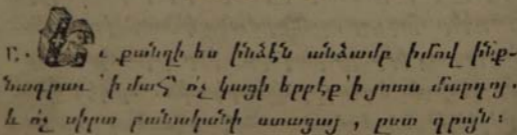 Եւ քանզի ես ինձէն անձամբ իմով ինք-
նագրաւ 'ի մահ՝ ոչ կացի երբէք 'ի յոտս մարդոյ.
և ոչ սիրտ բանականի ստացայ, ըստ գրոյն: